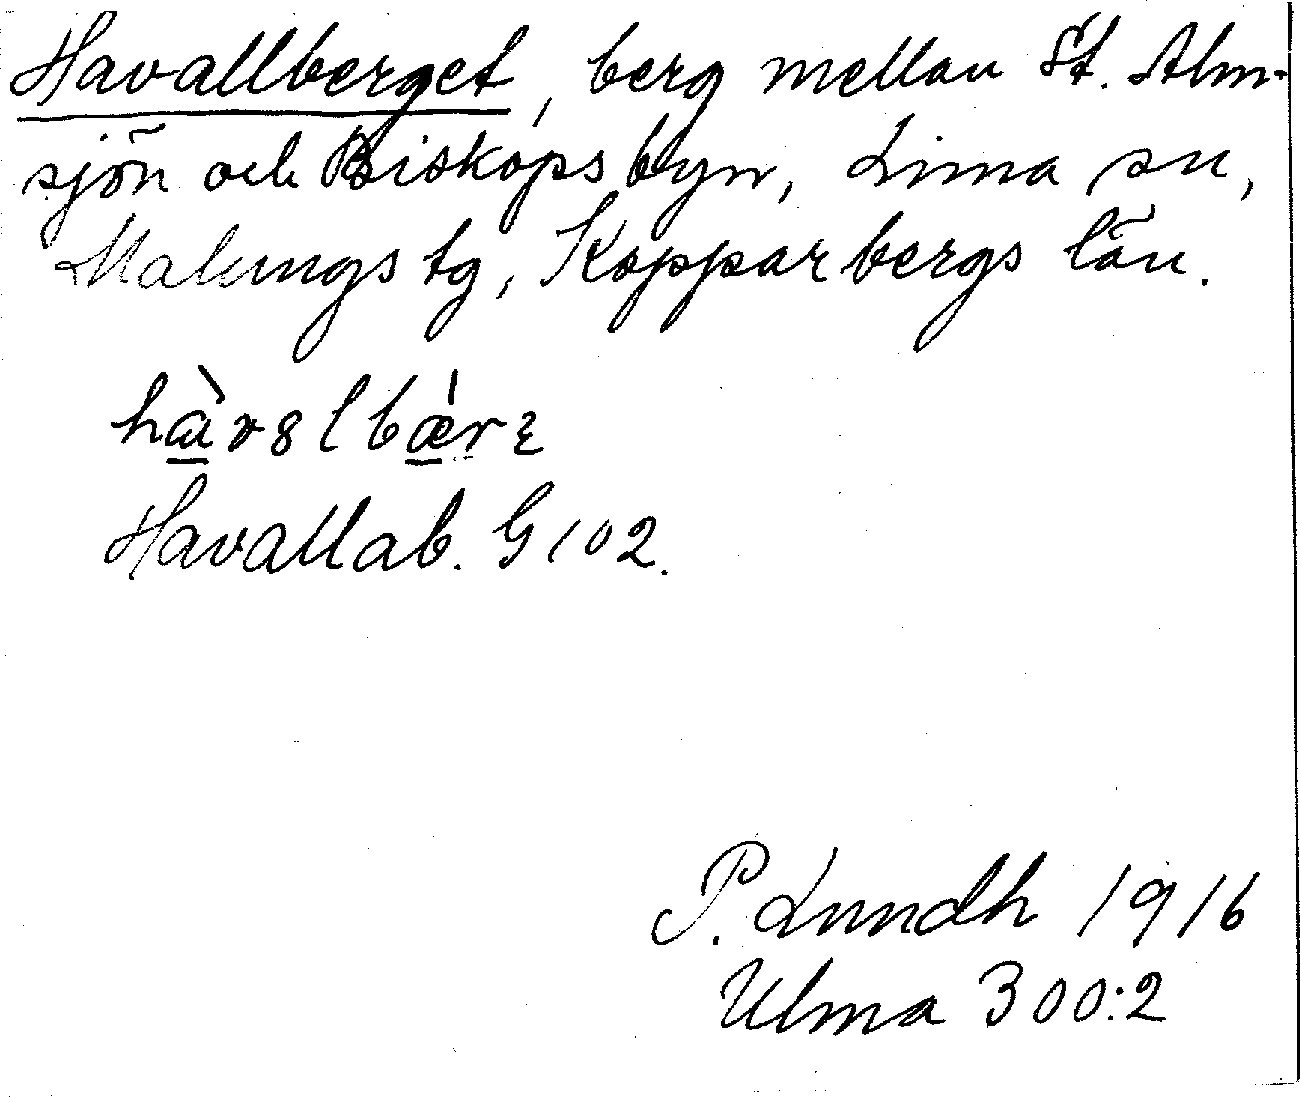 Havallberget, berg mellan St. Alm-
sjön och Biskopsbyn, Lima sn,
Malungs tg, Kopparbergs län.
hàvəlbǽrɛ
Havallab. G 102.
P. Lundh 1916
Ulma 300:2